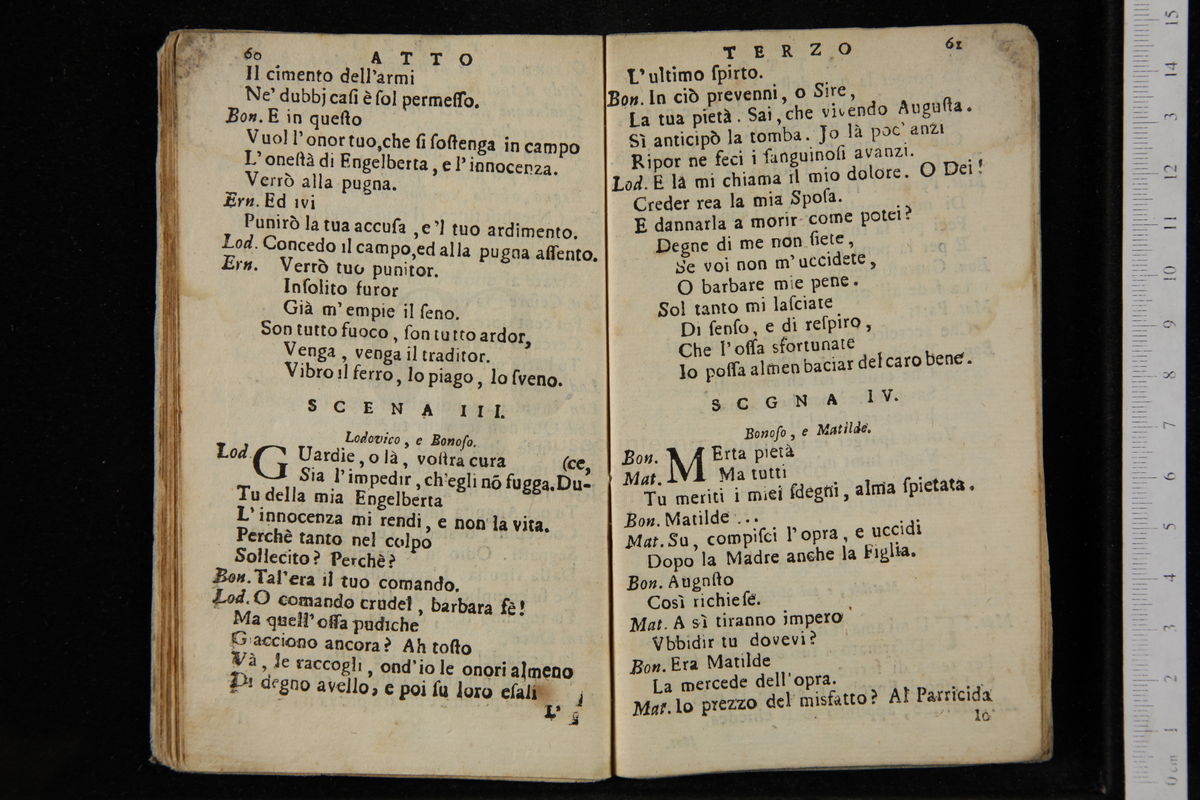 60
ATTO
Il cimento dell'armi
Ne' dubbj caſi è ſol permeſſo.
Bon. E in queſto
Vuol l'onor tuo,che ſi ſoſtenga in campo
L'oneſtà di Engelberta, e l'innocenza.
Verrò alla pugna.
Ern. Ed ivi
Punirò la tua accuſa, e'l tuo ardimento.
Lod. Concedo il campo,ed alla pugna aſſento.
Ern. Verrò tuo punitor.
Inſolito furor
Già m'empie il ſeno.
Son tutto fuoco, ſon tutto ardor,
Venga, venga il traditor.
Vibro il ferro, lo piago, lo ſveno.
SCENA III.
Lodovico, e Bonoſo.
Lod. GUardie, o là, voſtra cura (ce,
Sia l'impedir, ch'egli nō fugga.Du-
Tu della mia Engelberta
L'innocenza mi rendi, e non la vita.
Perchè tanto nel colpo
Sollecito? Perchè?
Bon. Tal'era il tuo comando.
Lod. O comando crudel, barbara fè!
Ma quell'oſſa pudiche
Giacciono ancora? Ah toſto
Và, le raccogli, ond'io le onori almeno
Di degno avello, e poi ſu loro eſali
L'
TERZO
61
L'ultimo ſpirto.
Bon. In ciò prevenni, o Sire,
La tua pietà. Sai, che vivendo Auguſta.
Sì anticipò la tomba. Jo là poc'anzi
Ripor ne feci i ſanguinoſi avanzi.
Lod. E là mi chiama il mio dolore. O Dei!
Creder rea la mia Spoſa.
E dannarla a morir come potei?
Degne di me non ſiete,
Se voi non m'uccidete,
O barbare mie pene.
Sol tanto mi laſciate
Di ſenſo, e di reſpiro,
Che l'oſſa sfortunate
Io poſſa almen baciar del caro bene.
SCGNA IV.
Bonoſo, e Matilde.
Bon. MErta pietà
Mat. Ma tutti
Tu meriti i miei ſdegni, alma ſpietata.
Bon. Matilde...
Mat. Su, compiſci l'opra, e uccidi
Dopo la Madre anche la Figlia.
Bon. Augnſto
Così richieſe.
Mat. A sì tiranno impero
Vbbidir tu dovevi?
Bon. Era Matilde
La mercede dell'opra.
Mat. Io prezzo del misfatto? Al Parricida
Io
0 cm 1 2 3 4 5 6 7 8 9 10 11 12 13 14 15